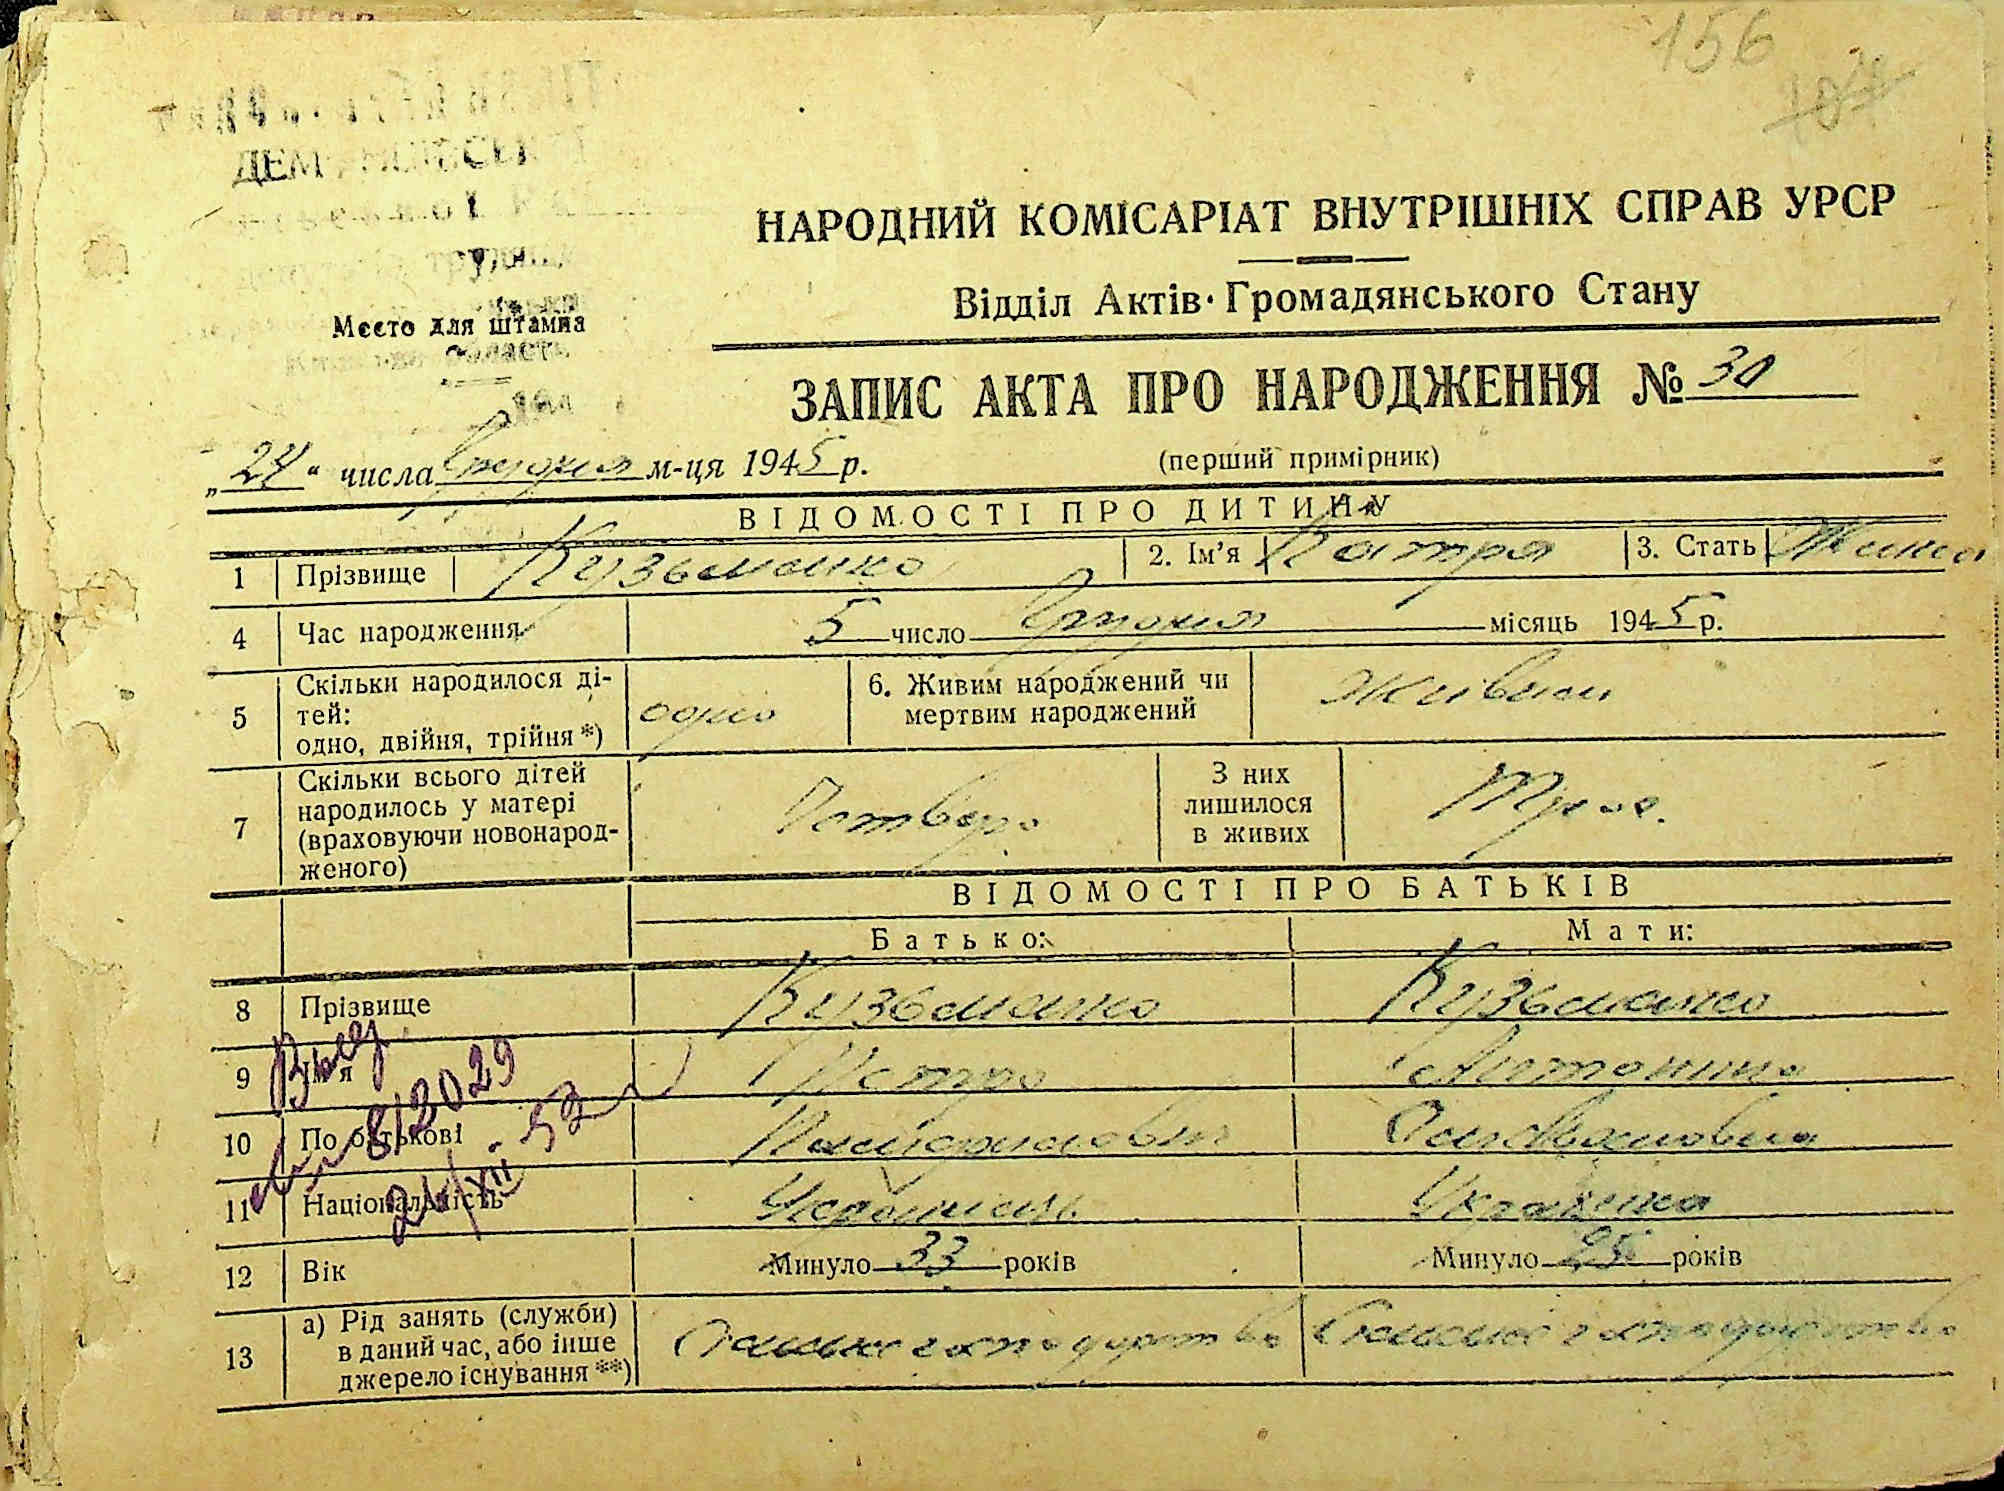 156
НАРОДНИЙ КОМІСАРІАТ ВНУТРІШНІХ СПРАВ УРСР
Відділ Актів Громадянського Стану
Место для штампа
ЗАПИС АКТА ПРО НАРОДЖЕННЯ № 30
(перший примірник)
„24" числа Грудня м-ця 1945 р.
ВІДОМОСТІ ПРО ДИТИНУ
1 Прізвище Кузьменко 2. Ім'я Катря 3. Стать Жіноч
4 Час народження 5 число Грудня місяць 1945 р.
5 Скільки народилося ді-
тей:
одно, двійня, трійня *) одно 6. Живим народжений чи
мертвим народжений Живим
7 Скільки всього дітей
народилось у матері
(враховуючи новонарод-
женого) Четверо З них
лишилося
в живих Троє.
ВІДОМОСТІ ПРО БАТЬКІВ
Батько: Мати:
8 Прізвище Кузьменко Кузьменко
9 Ім'я Петро Антонина
10 По батькові
11 Національність Українець Українка
12 Вік Минуло 33 років Минуло 25 років
13 а) Рід занять (служби)
в даний час, або інше
джерело існування **) Сільське господарство Сільське господарство
812029
24/XII-52